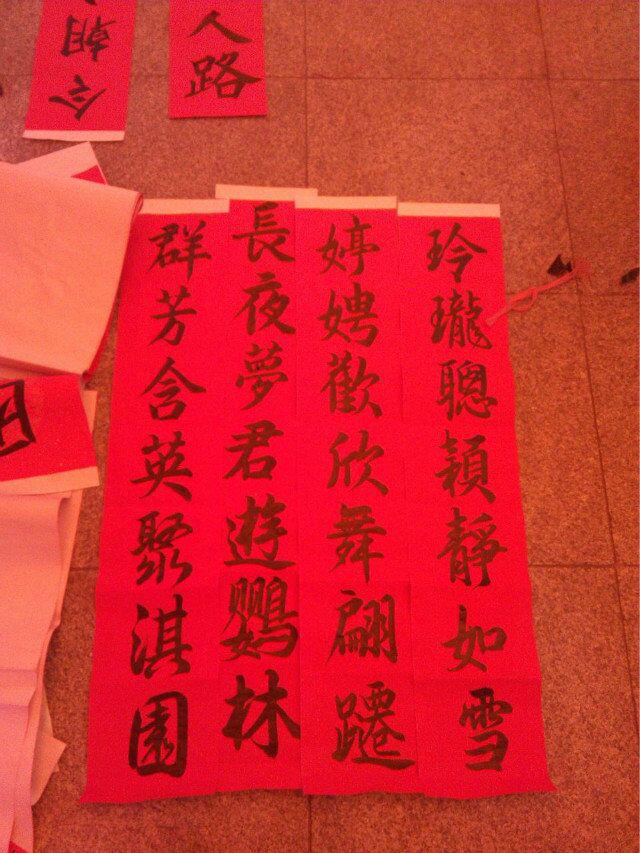 玲瓏聰穎靜如雪
婷娉歡欣舞翩蹮
長夜夢君遊鹦林
群芳含英聚淇園
人路
朝今